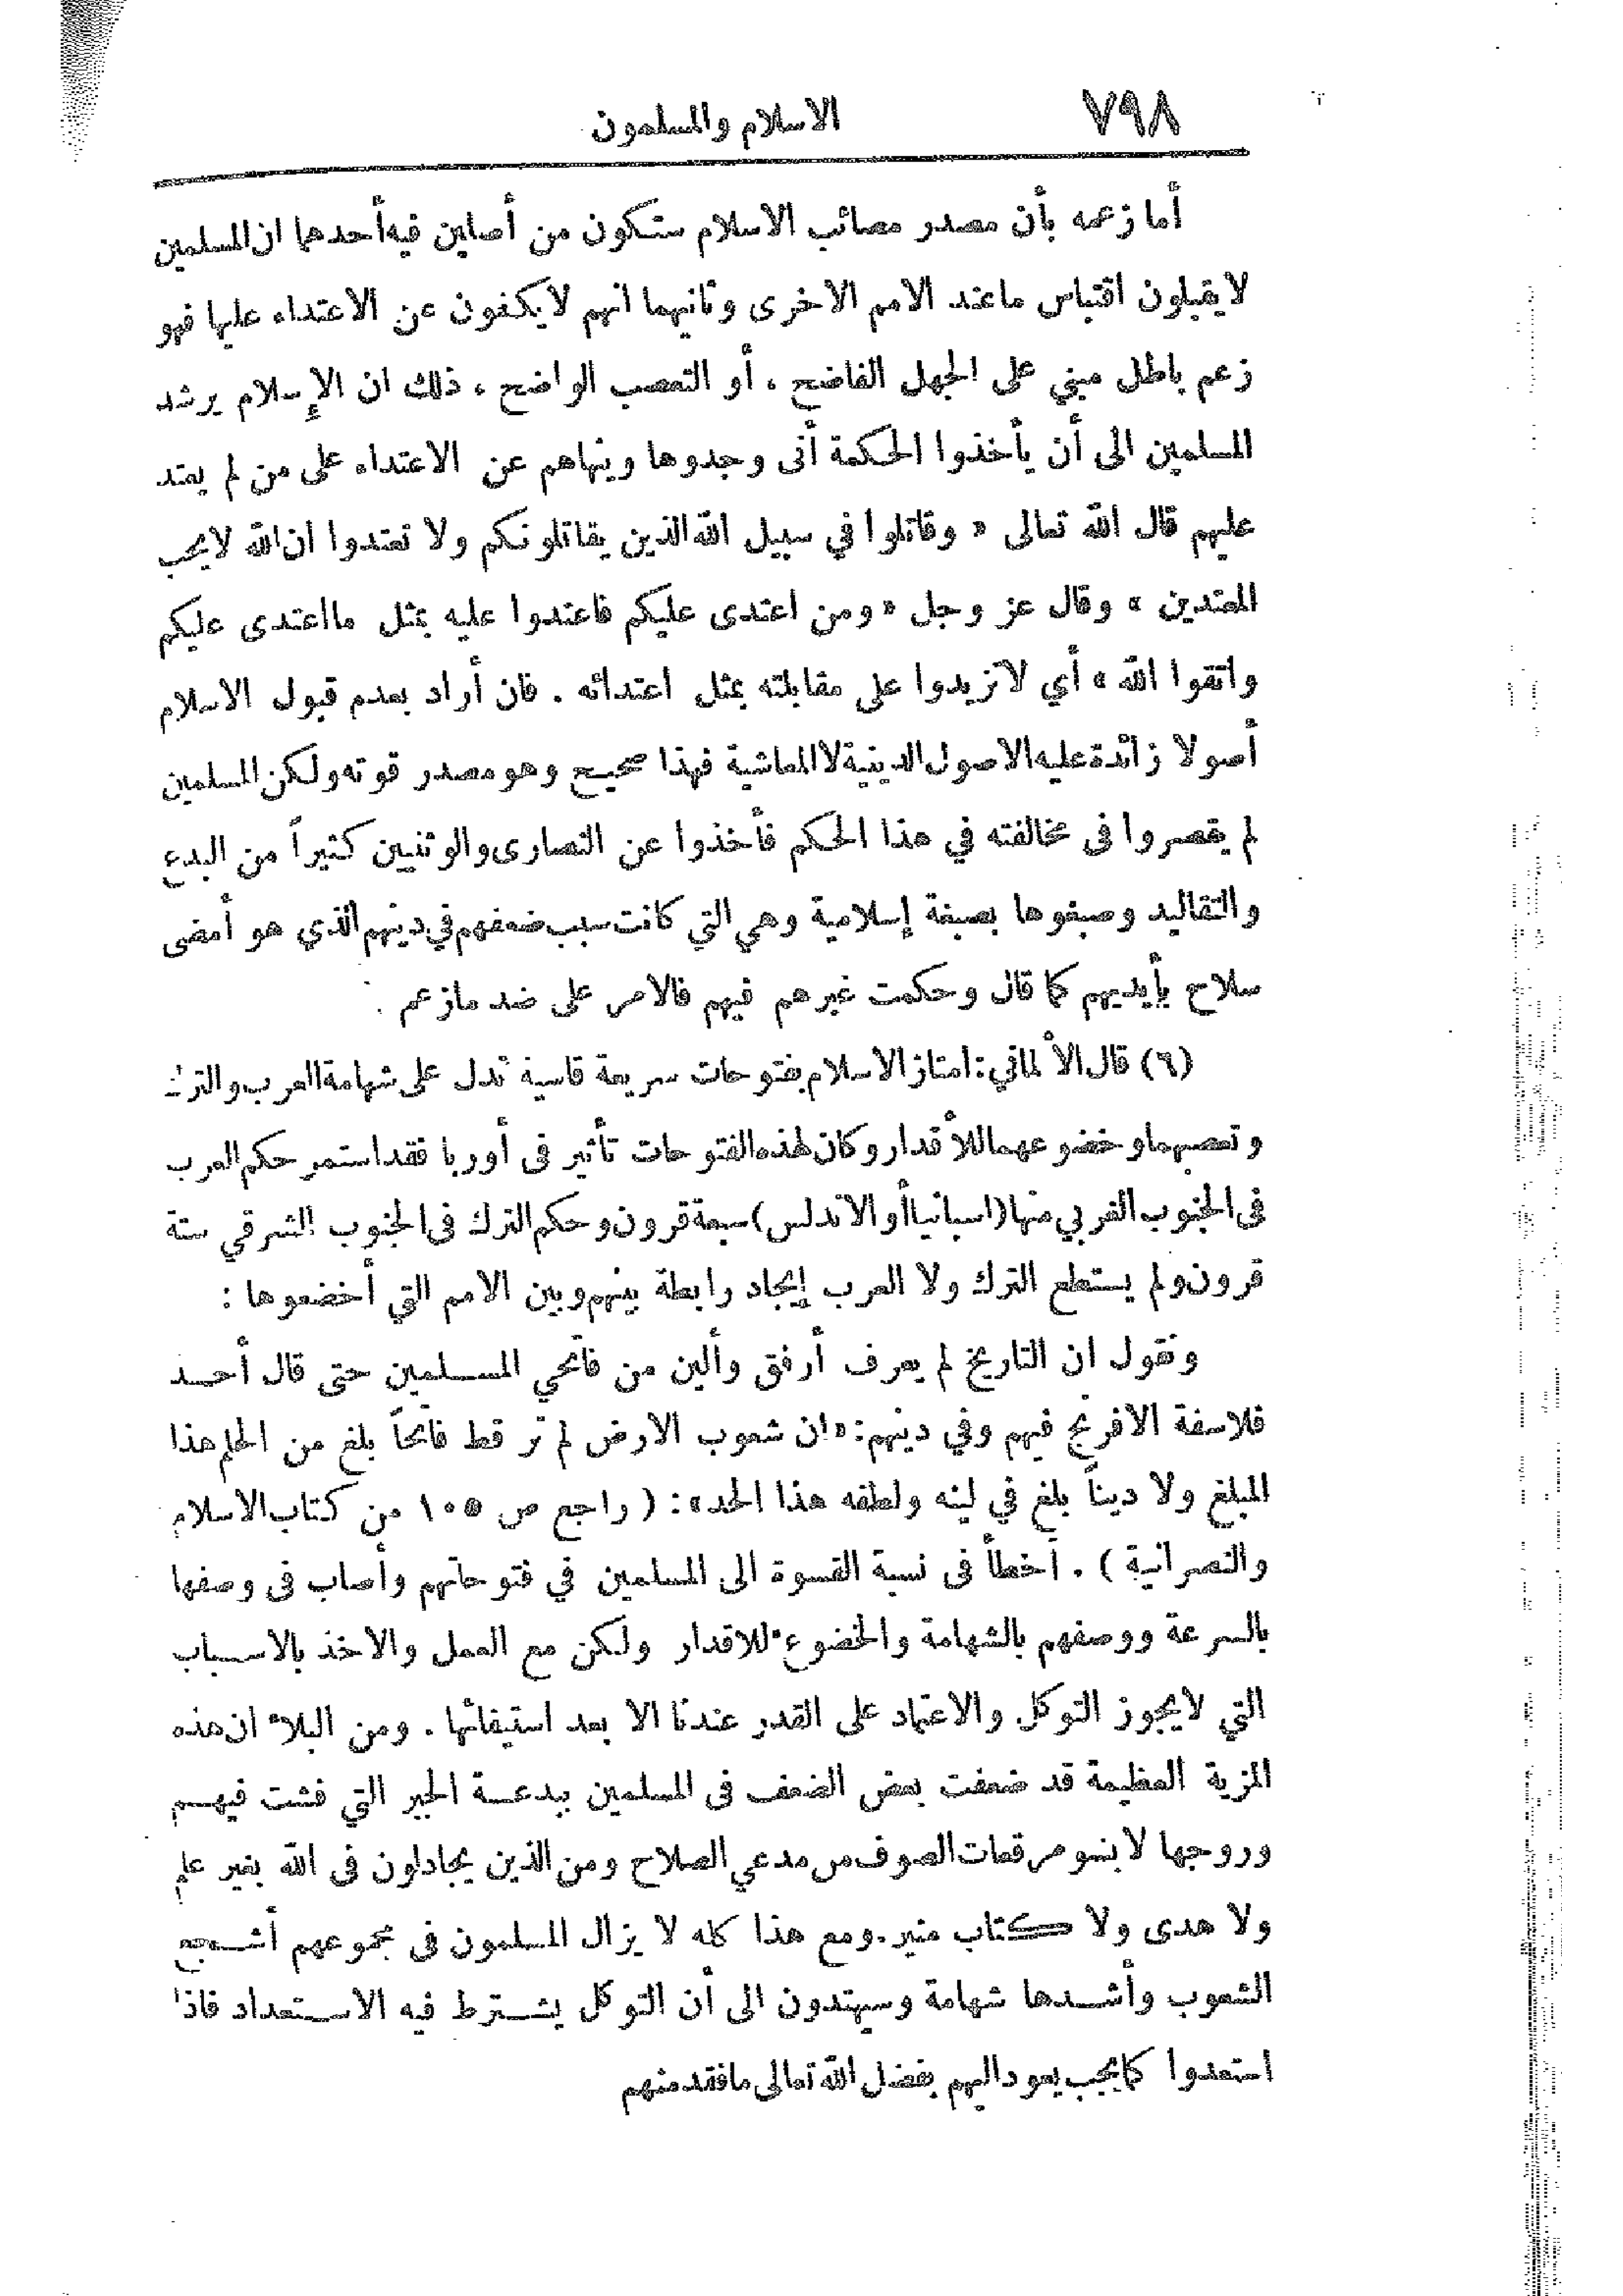 ٧٩٨
الاسلام والمسلمون
أما زعمه بأن مصدر مصائب الاسلام ستكون من أصلين فيه أحدهما ان المسلمين
لا يقبلون اقتباس ما عند الامم الاخرى وثانيهما انهم لا يكفون عن الاعتداء عليها فهو
زعم باطل مبني على الجهل الفاضح ، أو التعصب الواضح ، ذلك ان الإسلام يرشد
المسلمين الى أن يأخذوا الحكمة أنى وجدوها وينهاهم عن الاعتداء على من لم يعتد
عليهم قال الله تعالى « وقاتلوا في سبيل الله الذين يقاتلونكم ولا تعتدوا ان الله لا يحب
المعتدين » وقال عز وجل « ومن اعتدى عليكم فاعتدوا عليه بمثل ما اعتدى عليكم
واتقوا الله » أي لا تزيدوا على مقابلته بمثل اعتدائه . فان أراد بعدم قبول الاسلام
أصولا زائدة عليه الاصول الدينية لا المعاشية فهذا صحيح وهو مصدر قوته ولكن المسلمين
لم يقصروا فى مخالفته في هذا الحكم فأخذوا عن النصارى والوثنيين كثيراً من البدع
والتقاليد وصبغوها بصبغة إسلامية وهي التي كانت سبب ضعفهم في دينهم الذي هو أمضى
سلاح بأيديهم كما قال وحكمت غيرهم فيهم فالامر على ضد ما زعم .
(٦) قال الألماني : امتاز الاسلام بفتوحات سريعة قاسية تدل على شهامة العرب والترك
وتعصبهما وخضوعهما للأقدار وكان لهذه الفتوحات تأثير فى أوربا فقد استمر حكم العرب
فى الجنوب الغربي منها (اسبانيا أو الاندلس) سبعة قرون وحكم الترك فى الجنوب الشرقي ستة
قرون ولم يستطع الترك ولا العرب إيجاد رابطة بينهم وبين الامم التي أخضعوها :
ونقول ان التاريخ لم يعرف أرفق وألين من فاتحي المسلمين حتى قال أحد
فلاسفة الافرنج فيهم وفي دينهم : «ان شعوب الارض لم تر قط فاتحاً بلغ من الحلم هذا
المبلغ ولا ديناً بلغ في لينه ولطفه هذا الحد» : ( راجع ص ١٠٥ من كتاب الاسلام
والنصرانية ) . أخطأ فى نسبة القسوة الى المسلمين في فتوحاتهم وأصاب فى وصفها
بالسرعة ووصفهم بالشهامة والخضوع للاقدار ولكن مع العمل والاخذ بالاسباب
التي لا يجوز التوكل والاعتماد على القدر عندنا الا بعد استيفائها . ومن البلاء ان هذه
المزية العظيمة قد ضعفت بعض الضعف فى المسلمين ببدعة الجبر التي فشت فيهم
وروجها لابسو مرقعات الصوف من مدعي الصلاح ومن الذين يجادلون فى الله بغير علم
ولا هدى ولا كتاب منير. ومع هذا كله لا يزال المسلمون فى مجموعهم أشجع
الشعوب وأشدها شهامة وسيهتدون الى أن التوكل يشترط فيه الاستعداد فاذا
استعدوا كما يجب يعود اليهم بفضل الله تعالى ما فقد منهم